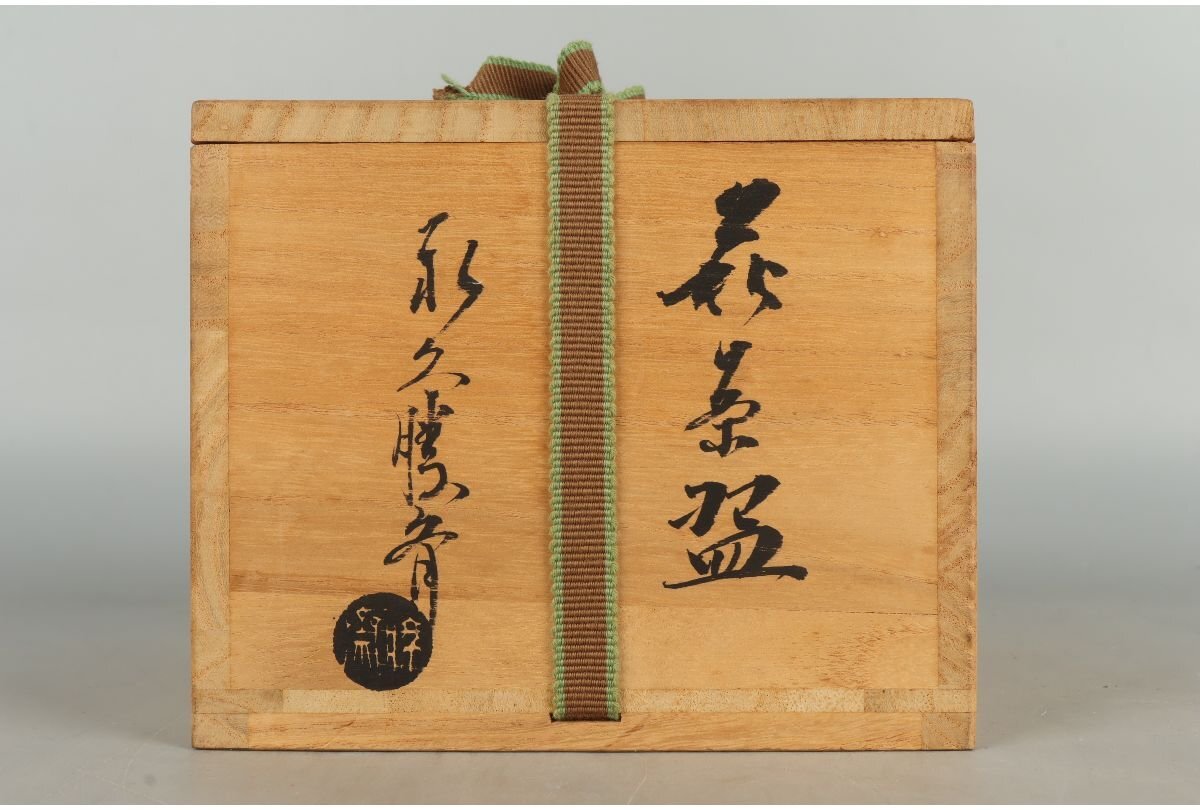 萩茶盌
永久勝斎